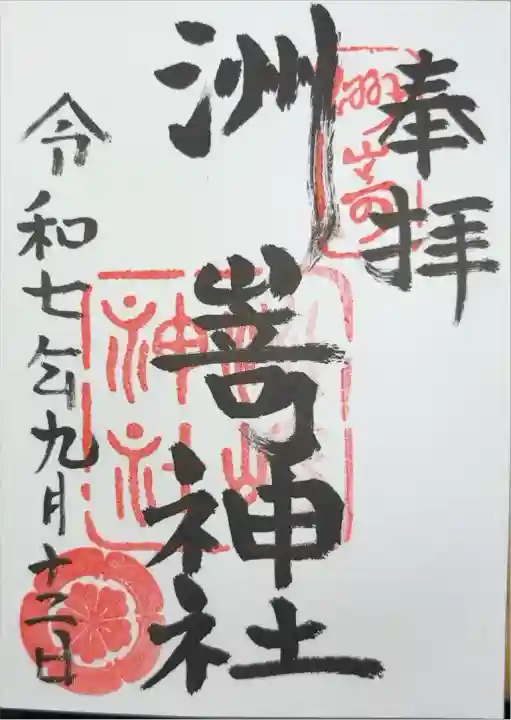 奉拝
洲嵜神社
令和七年九月十二日
洲嵜
神社